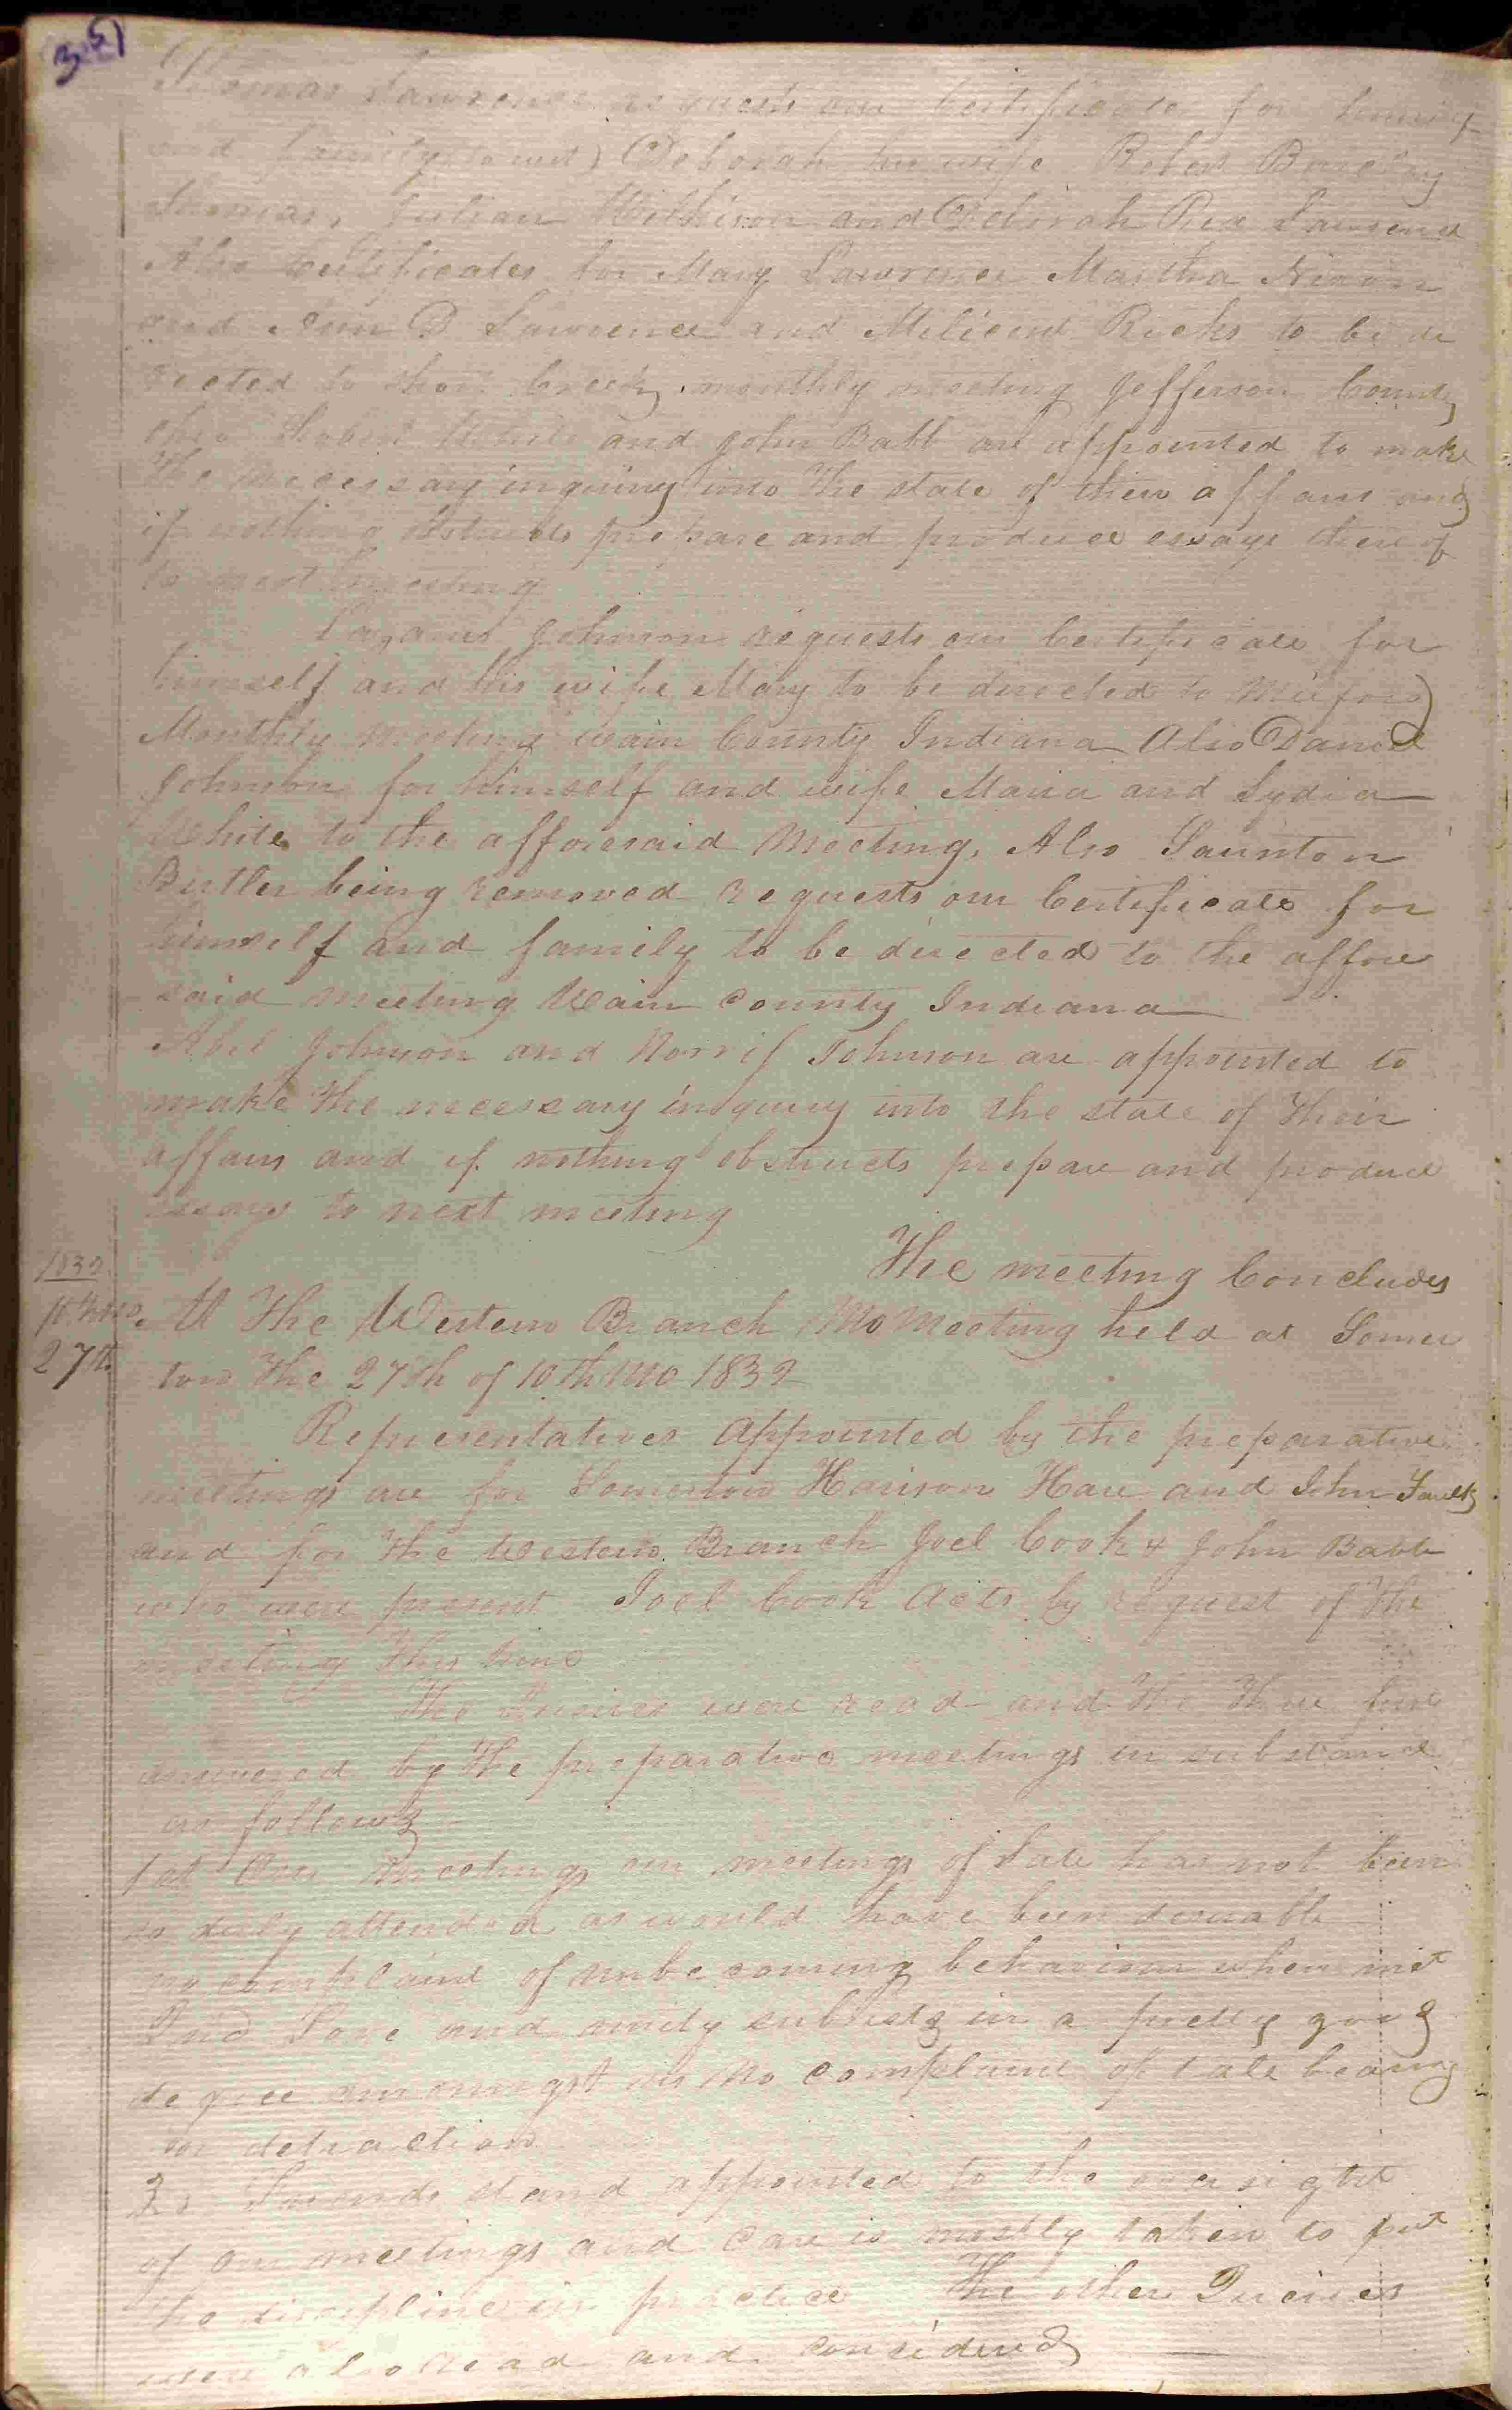 351
Thomas Lawrence requests our Certificate for himself
and family (to wit) Deborah his wife Robert Barclay
Thomas, Julian Wilkinson and Deborah Rix Lawrence
Also Certificates for Mary Lawrence Martha Nixon
and Ann D Lawrence and Milicent Ricks to be di
rected to Short Creek monthly meeting Jefferson County
Ohio Robert and John Babb are appointed to make
the necessary inquiry into the state of their affairs and
if nothing obstructs prepare and produce essays there of
to next meeting
Lazarus Johnson requests our Certificate for
himself and his wife Mary to be directed to Milford
Monthly meeting wain County Indiana Also Daniel
Johnson for himself and wife Maria and Lydia
White to the afforesaid Meeting, Also Saunton
Butler being removed requests our Certificate for
himself and family to be directed to the affore
said meeting Wain County Indiana
Abel Johnson and Norrif Johnson are appointed to
make the necessary inquiry into the state of their
affairs and if nothing obstructs prepare and produce
essays to next meeting
The meeting Concludes
1832
10th mo.
27th
At The Western Branch Mo Meeting held at Somer
ton The 27th of 10th mo 1832
Representatives appointed by the preparative
meetings are for Somerton Harison Hare and John Faulk
and for the Western Branch Joel Cook & John Babb
who were present Joel Cook acts by request of the
meeting this time
The Queries were read and the three first
answered by the preparative meetings in substance
as follows
1st Our Meetings our meetings of late has not been
so duly attended as would have been desirable
no complaint of unbecoming behaviour when met
2nd Love and unity subsists in a pretty good
degree amoungst us no complaint of tale bearing
or detraction
3d Friends stand appointed to the oversight
of our meetings and care is mostly taken to put
the discipline in practice The other Queries
were also read and considered